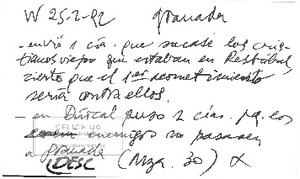 W 25-2-92 granada
- envió 1 cía. que sacase los cris-
tianos viejos que estaban en Restábal,
cierto que el 1er acometimiento
sería contra ellos.
- en Dúrcal puso 2 cías. pa. los
enemigos no pasasen
a granada (Mza. 30) α
DESC